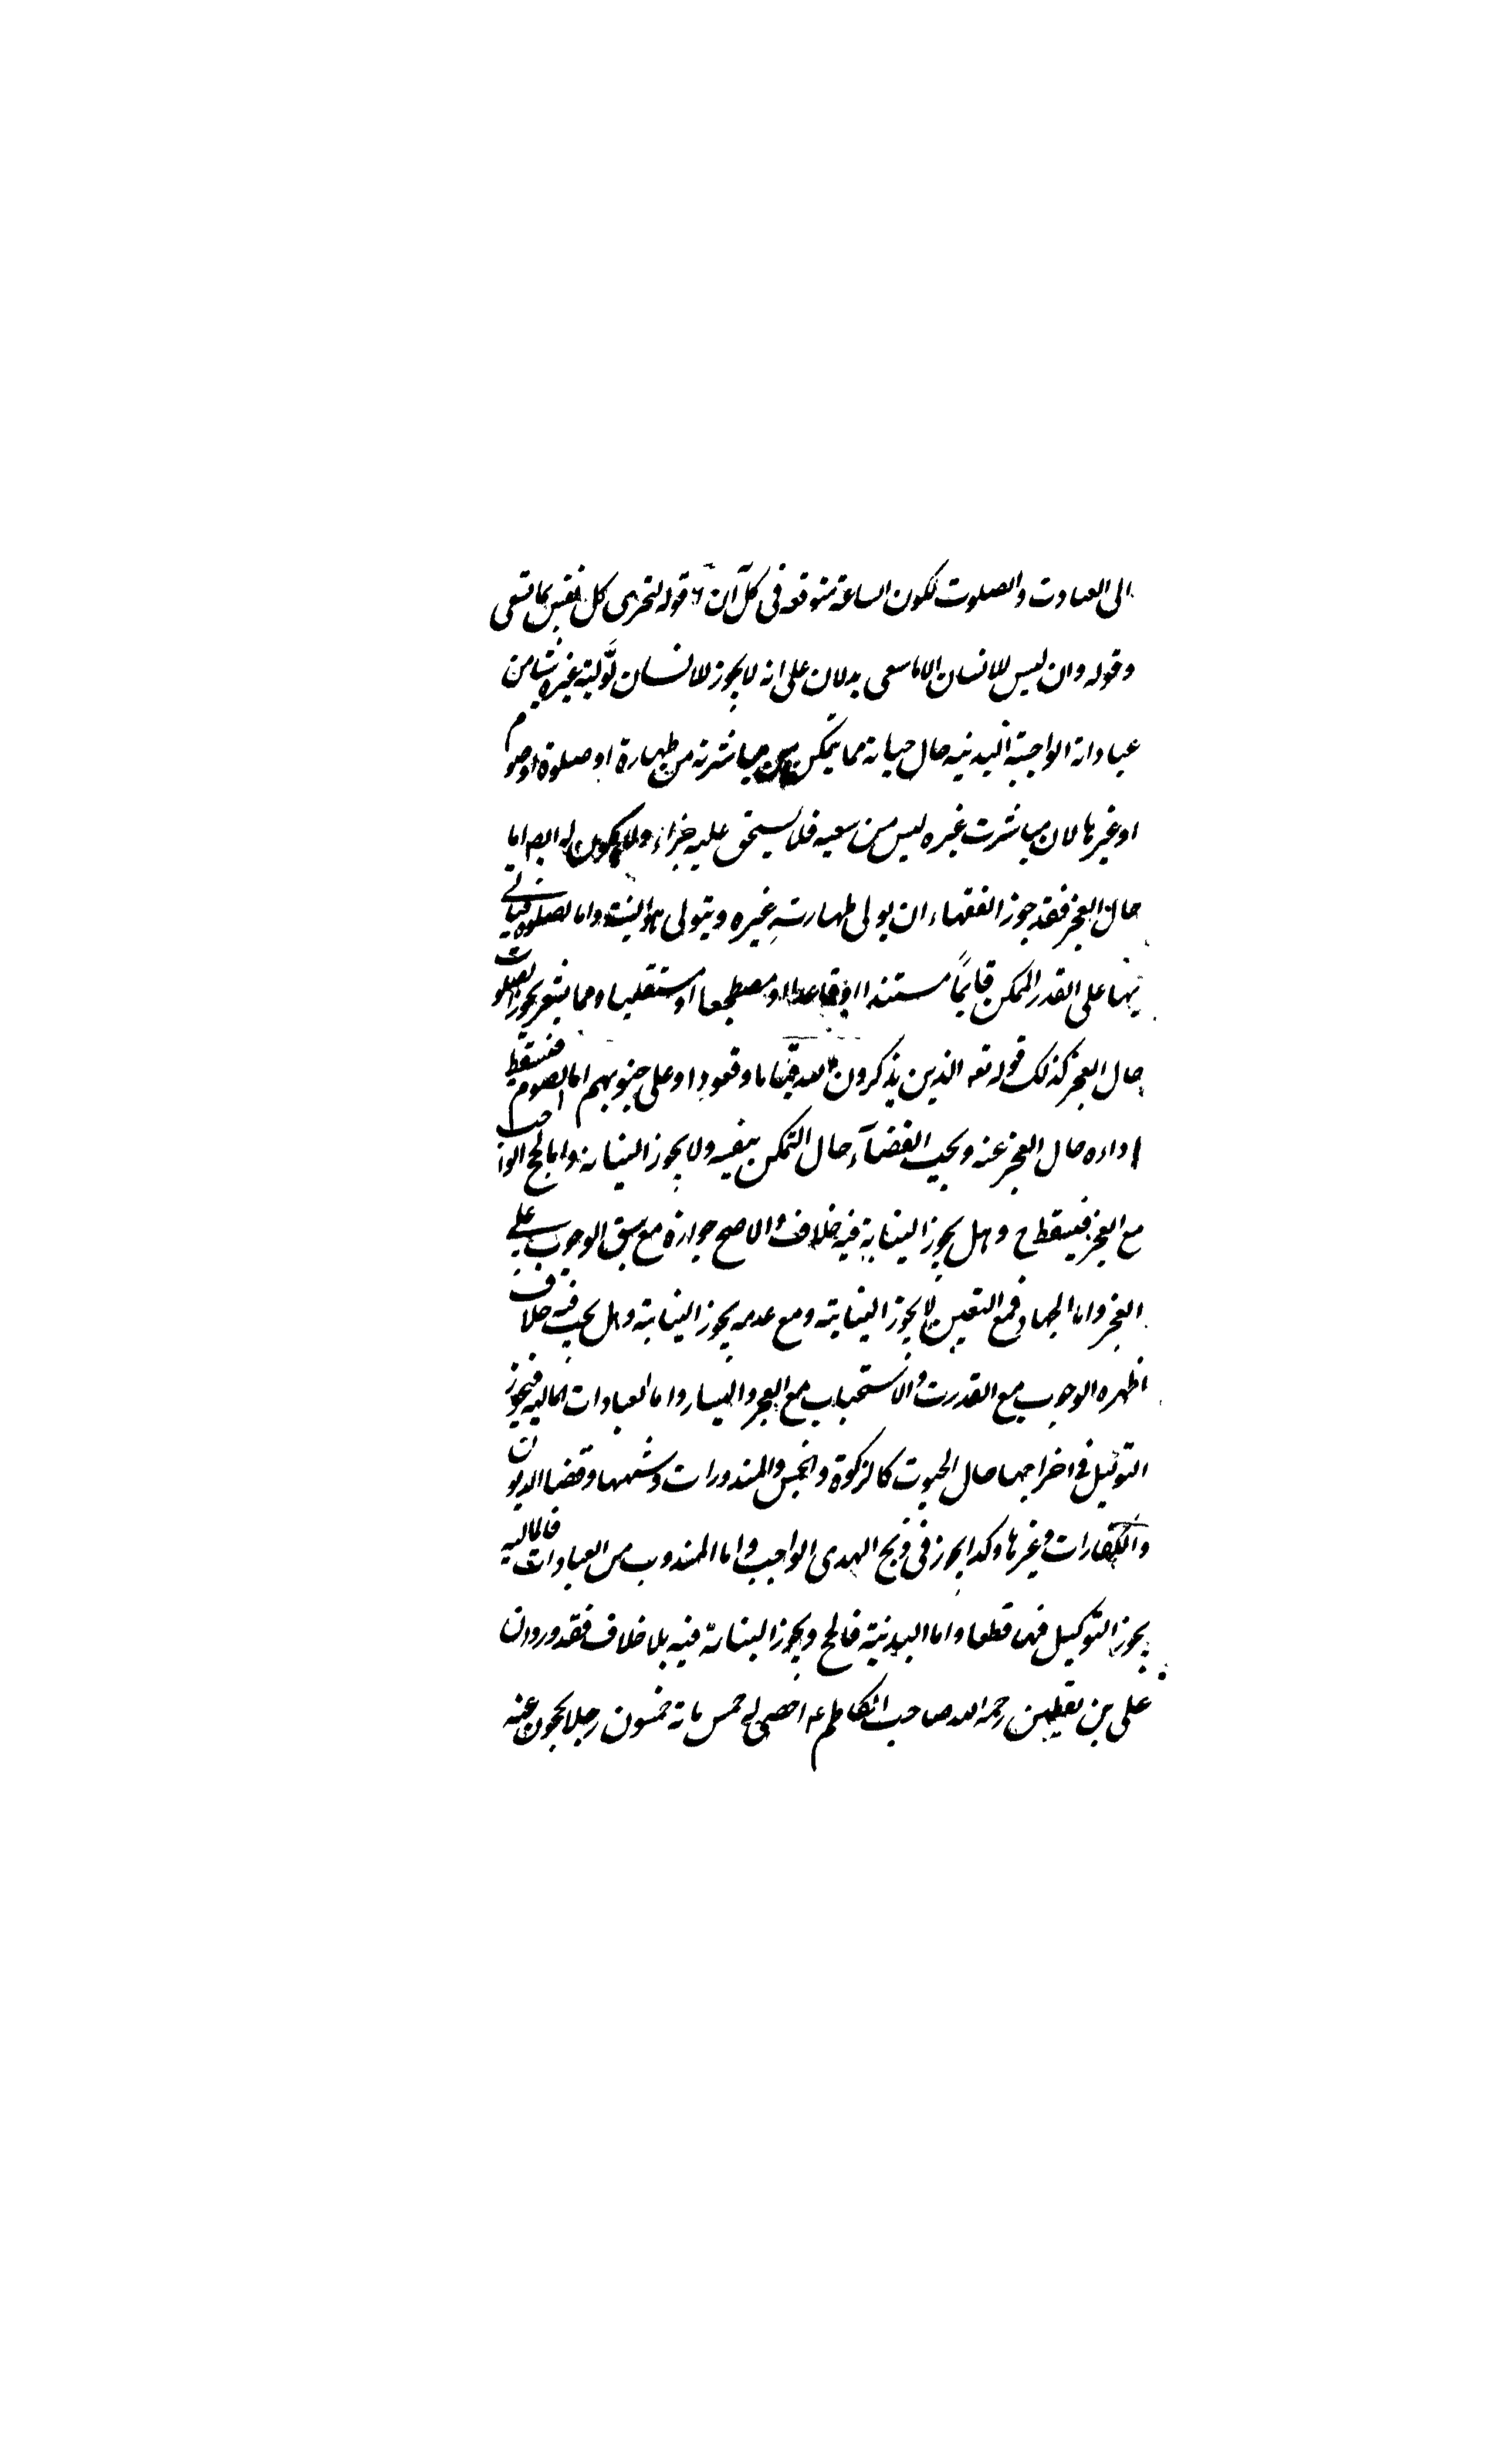 الى العبادت والصلوت لكون الساعة متوقعه فى كلّ آن و قوله لتجزى كل نفس بما تسعى
وقوله وان ليس للانسان الا ما سعى يدلان على انه لا يجوز للانسان تولية غيره شيأ من
عباداته الواجبة البدنيه حال حياته مما يتمكن من مباشرته من طهارة او صلوة او صوم
او غيرها لان مباشرت غيره ليس من سعيه فلا يستحق عليه جزاء ولا يكون له ايضا اما
حال العجز فقد جوز الفقهاء ان يولى طهارته غيره ويتولى هو النية واما الصلوة فياتى
منها على القدر الممكن قايمًا مستندا او قاعدا او مضطجعا او مستلقيا ومما يشعر بجواز الصلوت
حال العجز كذلك قوله تعه الذين يذكرون الله قياما وقعودا وعلى جنوبهم اما الصوم فيسقط
اداءه حال العجز عنه ويجب القضآء حال التمكن بنفسه ولا يجوز النيابة واما الحج الواجب
مع العجز فيسقط وهل يجوز النيابة فيه خلاف والاصح جوازه مع سبق الوجوب على
العجز واما الجهاد فمع التعين لا يجوز النيابته ومع عدمه يجوز النيابته وهل يجب فيه خلاف
اظهره الوجوب مع القدرت والاستحباب مع العجز واليسار واما العبادات الماليه فيجوز
التوكيل فى اخراجها حال الحيوت كالزكوة والخمس والمنذورات وشبهها وقضا الديون
والكفارات وغيرها وكذا يجوز فى ذبح الهدى الواجب واما المندوب من العبادات فالماليه
يجوز التوكيل فيها قطعا واما البدنية فالحج ويجوز النيابة فيه بلا خلاف فقد ورد ان
على بن يقطين رحمه الله صاحب الكاظم ع احصى له خمس مائة خمسون رجلا يحجون عنه